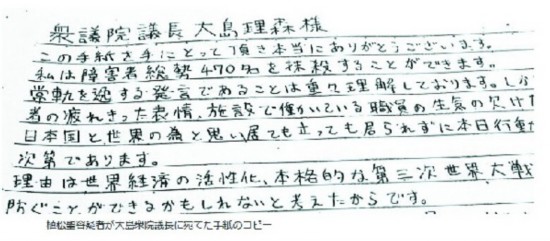 衆議院議長大島理森様
この手紙を手にとって頂き本当にありがとうございます。
私は障害者総勢470名を抹殺することができます。
常軌を逸する発言であることは重々理解しております。しか
者の疲れきった表情、施設で働いている職員の生気の欠けた
日本国と世界の為と思い居ても立っても居られずに本日行動
次第であります。
理由は世界経済の活性化、本格的な第三次世界大戦
防ぐことができるかもしれないと考えたからです。
植松聖容疑者が大島衆院議長に宛てた手紙のコピー